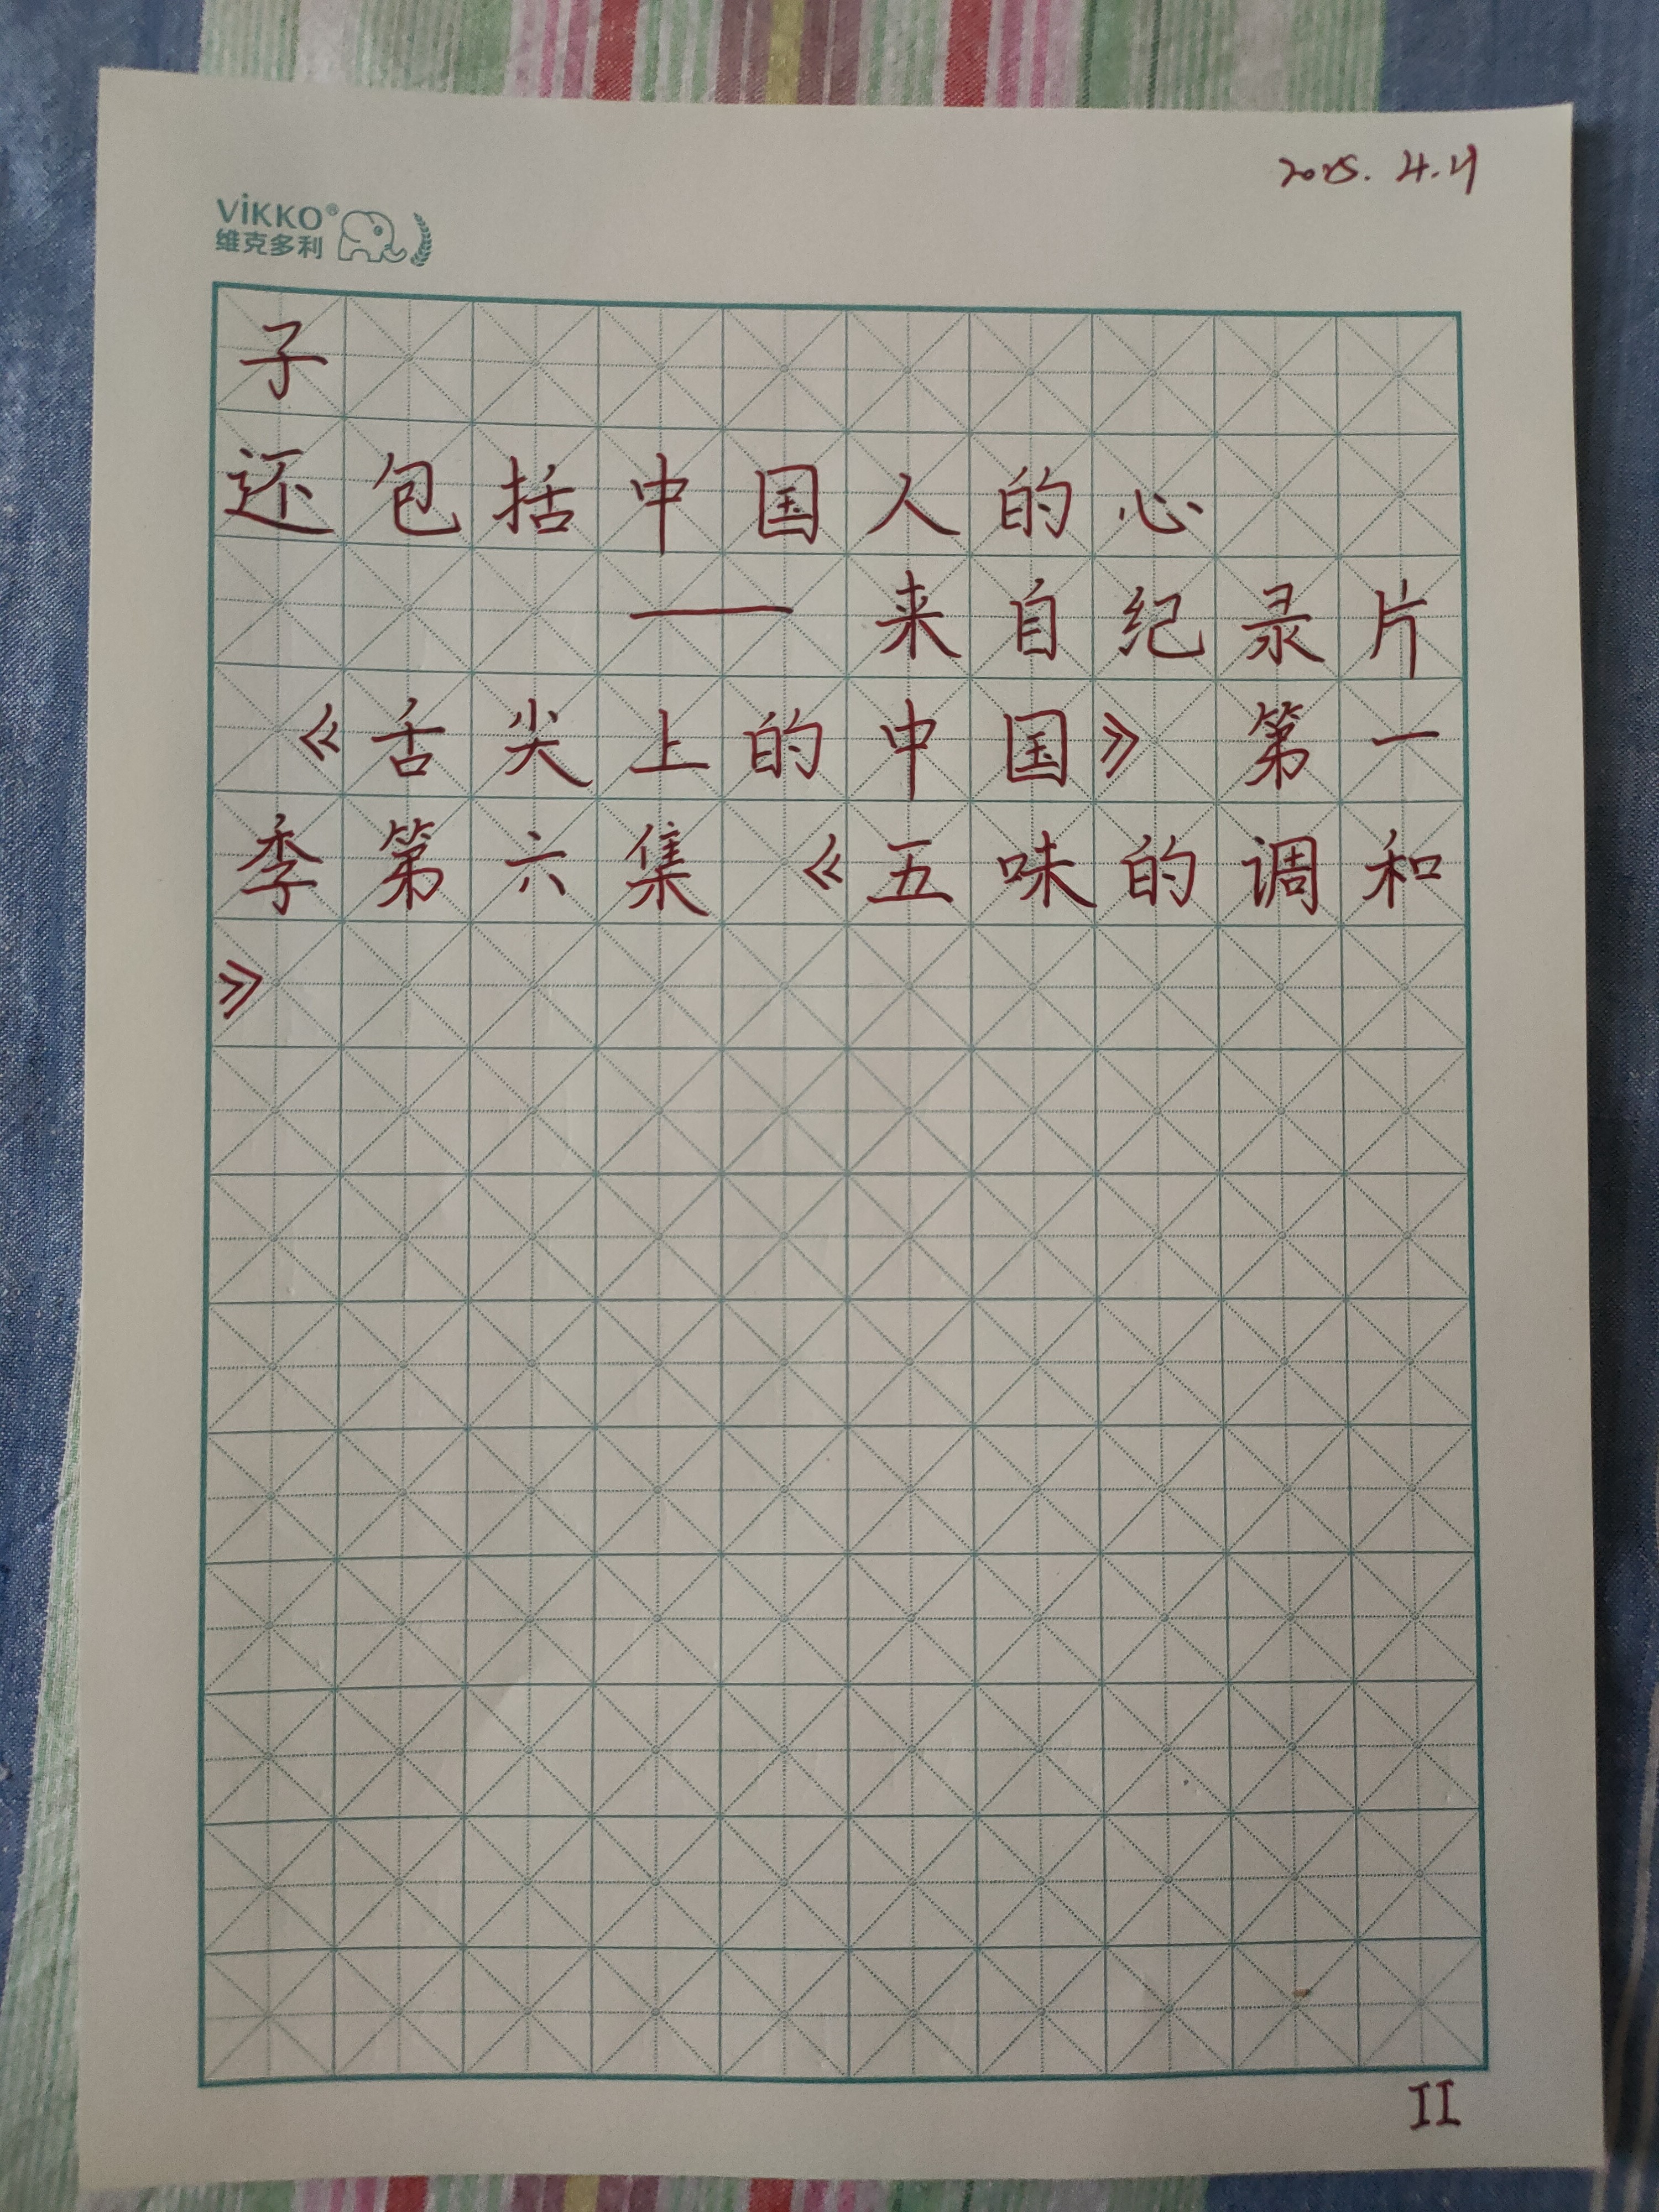 2025. 4.21
ViKKO®
维克多利
子
还包括中国人的心
——来自纪录片
《舌尖上的中国》第一
季第六集《五味的调和
》
II